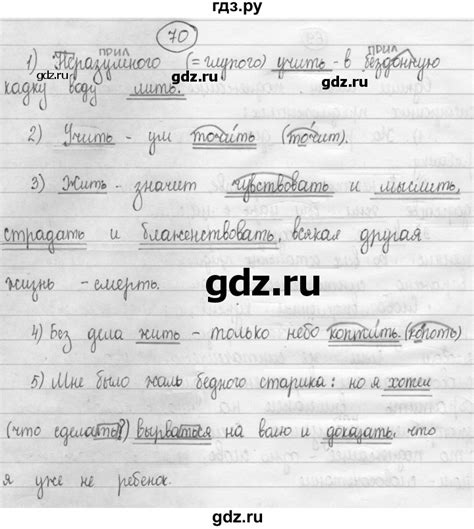 гдз.ру
70
прил
прил
1) Неразумного (=глупого) учить - в бездонную
gdz.ru
gdz.ru
кадку воду лить.
2) Учить - ум точить (точит).
gdz.ru
gdz.ru
3) Жить - значит чувствовать и мыслить,
страдать и блаженствовать, всякая другая
gdz.ru
жизнь - смерть.
4) Без дела жить - только небо коптить. (копоть)
gdz.ru
gdz.ru
5) Мне было жаль бедного старика: но я хотел
(что сделать?) вырваться на волю и доказать, что
gdz.ru
gdz.ru
я уже не ребенок.
gdz.ru